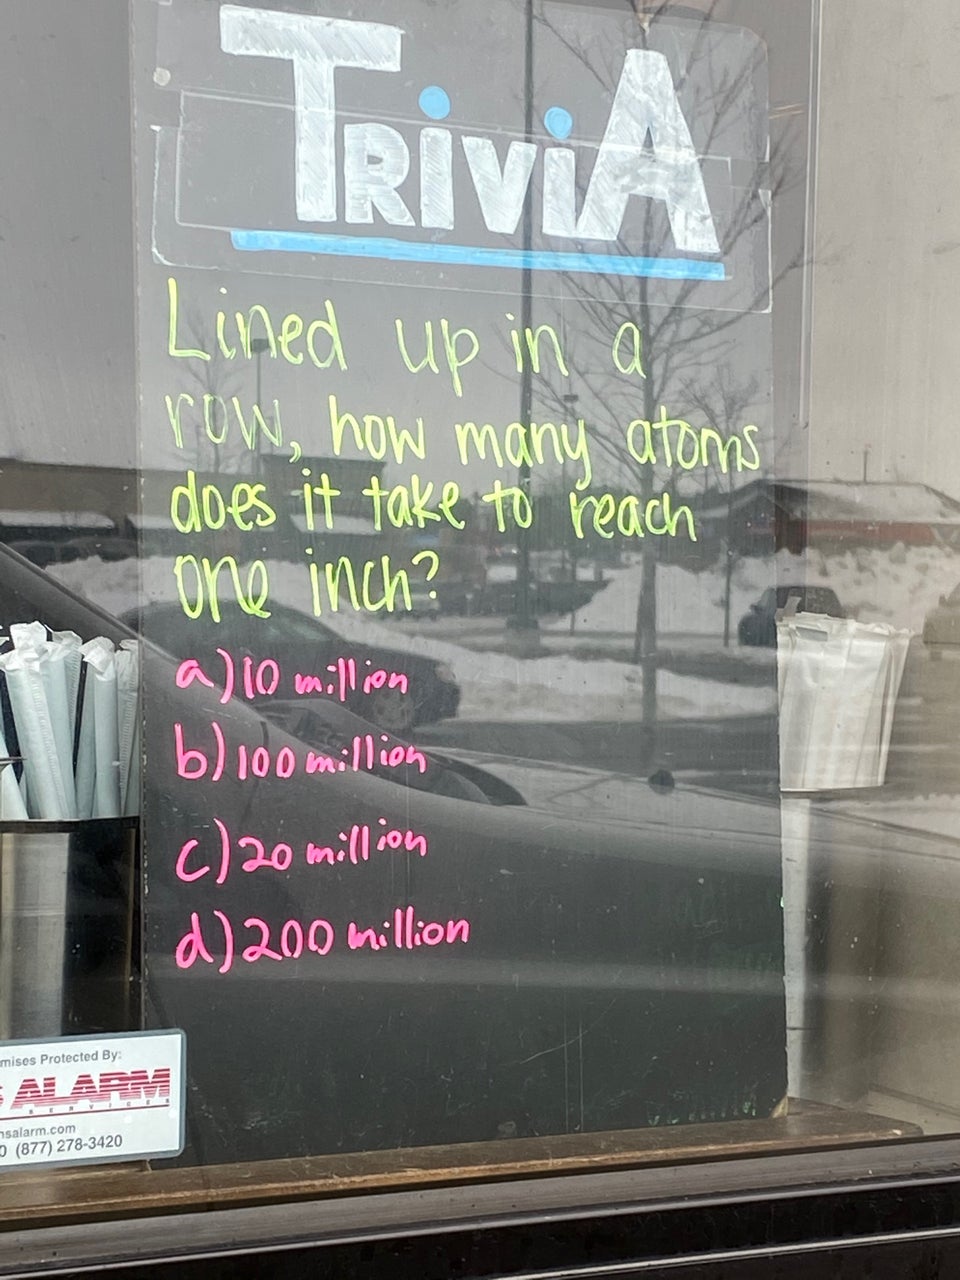 TRiViA
Lined up in a
row, how many atoms
does it take to reach
one inch?
a) 10 million
b) 100 million
c) 20 million
d) 200 million
mises Protected By:
S ALARM
SERVICES
nsalarm.com
0 (877) 278-3420